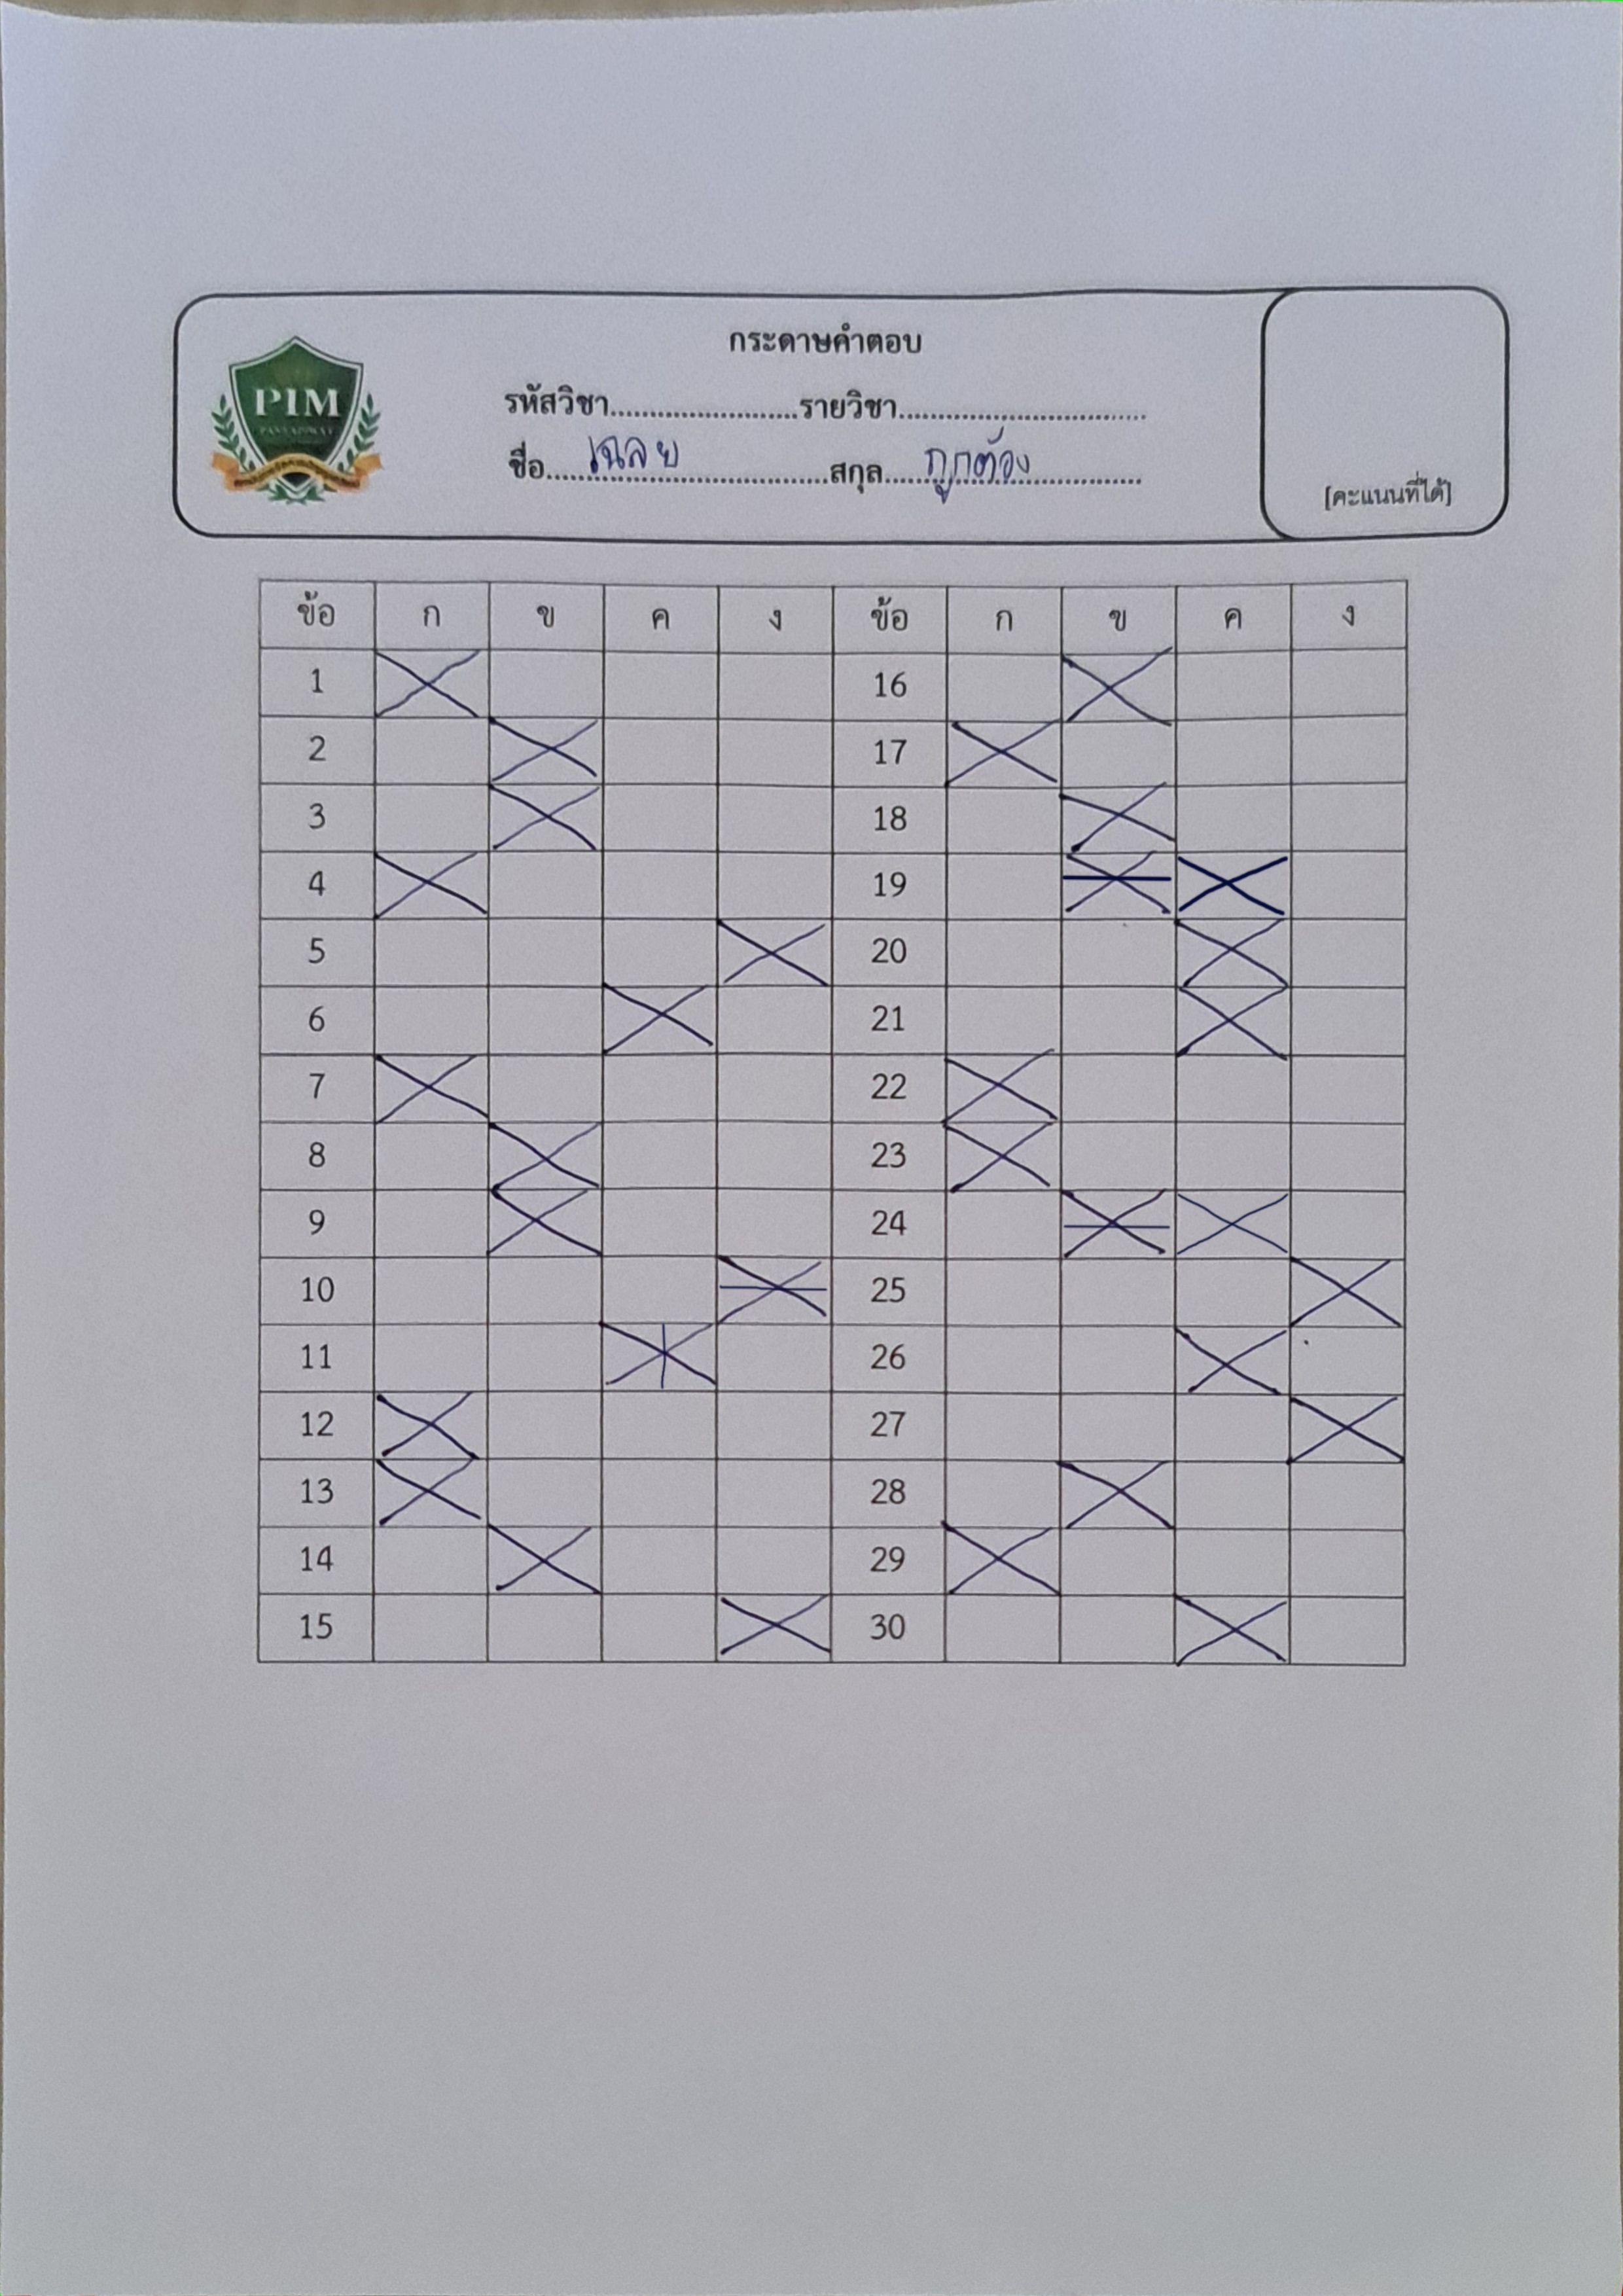 กระดาษคำตอบ
รหัสวิชา........................รายวิชา................................
ชื่อ.....เฉลย.....................สกุล.....ถูกต้อง...................
[คะแนนที่ได้]
PIM
ข้อ ก ข ค ง ข้อ ก ข ค ง
1 X 16 X
2 X 17 X
3 X 18 X
4 X 19 X X
5 X 20 X
6 X 21 X
7 X 22 X
8 X 23 X
9 X 24 X X
10 X 25 X
11 X 26 X
12 X 27 X
13 X 28 X
14 X 29 X
15 X 30 X